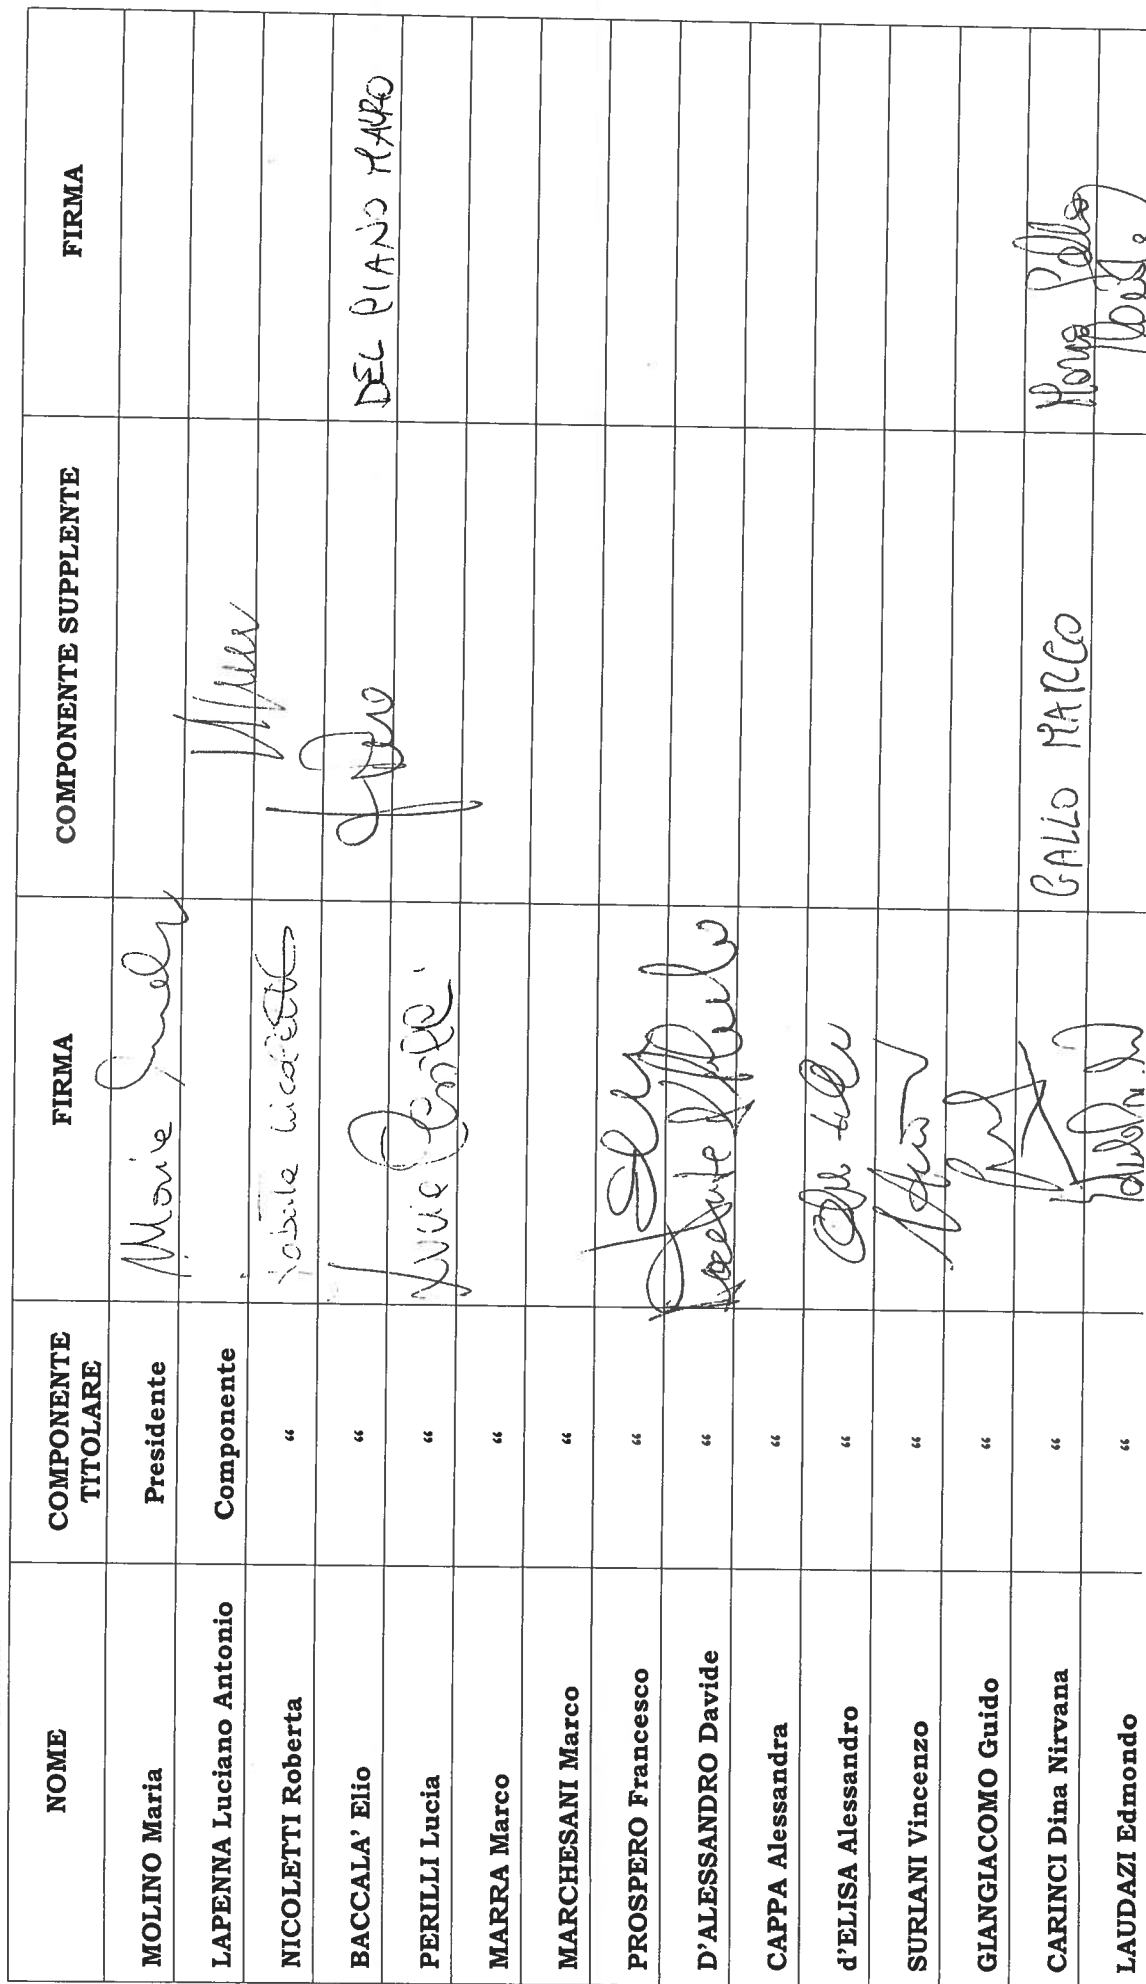 NOME COMPONENTE TITOLARE FIRMA COMPONENTE SUPPLENTE FIRMA
MOLINO Maria Presidente Maria
LAPENNA Luciano Antonio Componente
NICOLETTI Roberta “
BACCALA’ Elio “ DEL PIANO MAURO
PERILLI Lucia “ Lucia Perilli
MARRA Marco “
MARCHESANI Marco “
PROSPERO Francesco “
D’ALESSANDRO Davide “
CAPPA Alessandra “
d’ELISA Alessandro “
SURIANI Vincenzo “
GIANGIACOMO Guido “
CARINCI Dina Nirvana “ GALLO MARCO
LAUDAZI Edmondo “